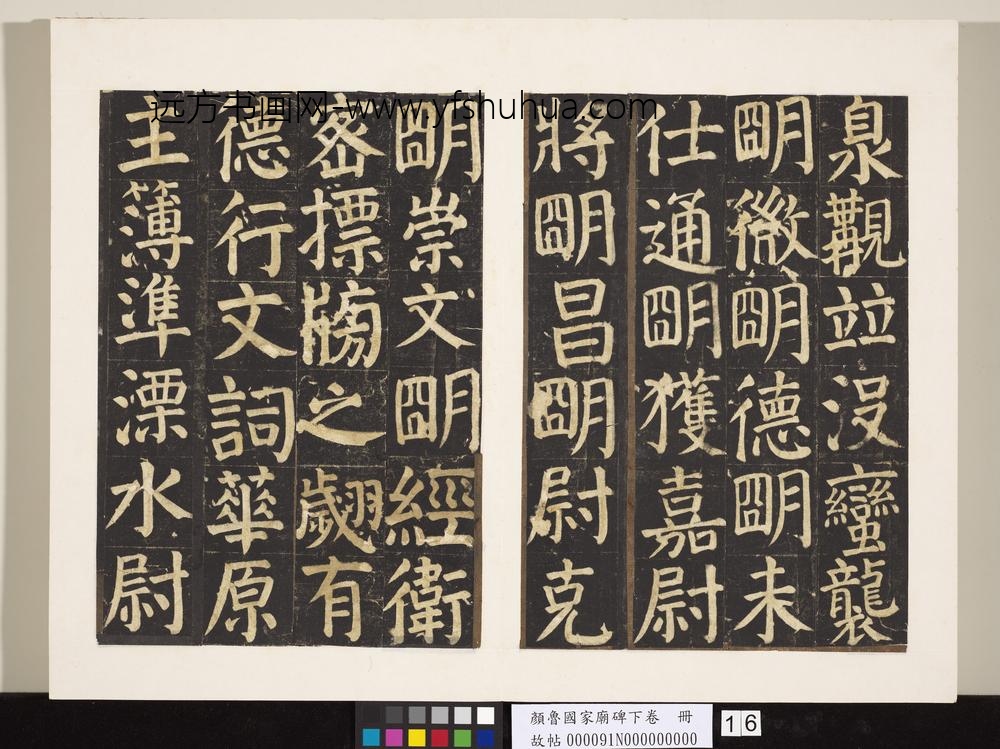 远方书画网-www.yfshuhua.com
泉觀並沒蠻襲
朙微朙德朙未
仕通朙獲嘉尉
將朙昌朙尉克
朙崇文朙經衛
密摽牓之翽有
德行文詞華原
主簿準溧水尉
顏魯國家廟碑下卷 冊
故帖 000091N000000000
16